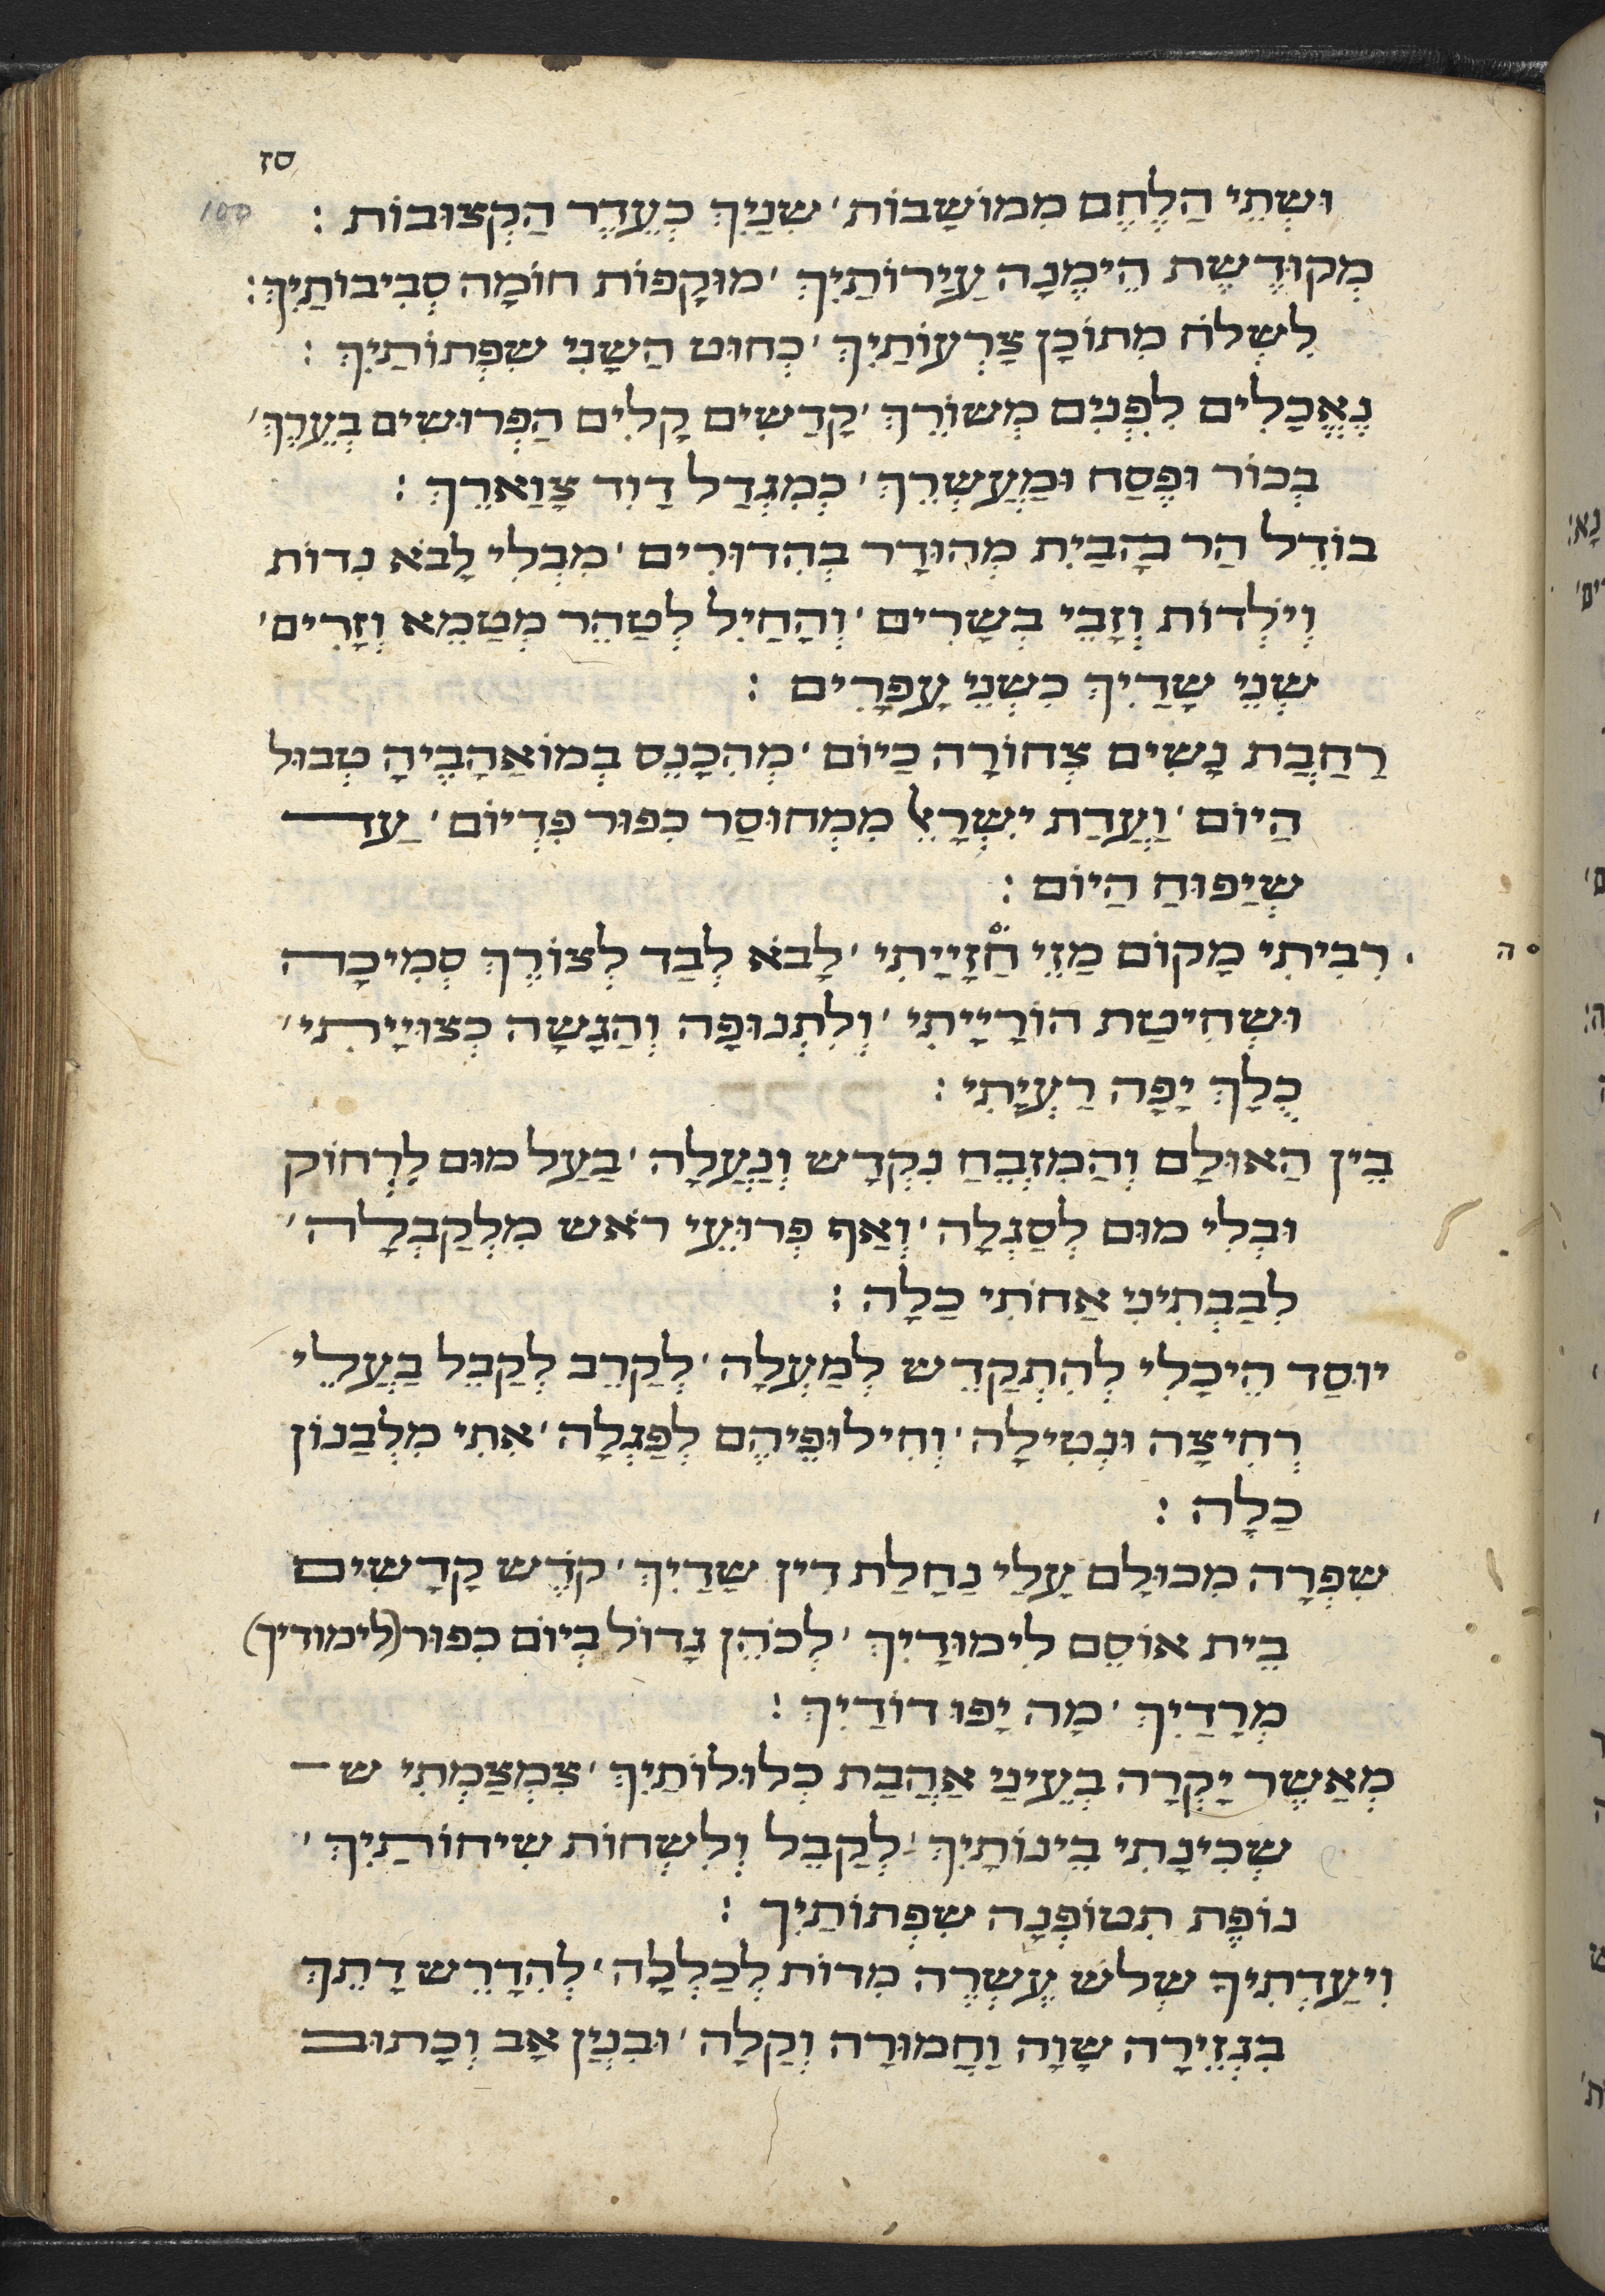 סז
100
וּשְׁתֵּי הַלֶּחֶם מִמּוֹשָׁבוֹת׳ שִׁנַּיִךְ כְּעֵדֶר הַקְּצוּבוֹת :
מְקוּדֶּשֶׁת הֵימֶנָּה עֲיָירוֹתַיִךְ׳ מוּקָּפוֹת חוֹמָה סְבִיבוֹתַיִךְ :
לִשְׁלֹחַ מִתּוֹכָן צָרְעוֹתַיִךְ׳ כְּחוּט הַשָּׁנִי שִׂפְתוֹתַיִךְ :
נֶאֱכָלִים לִפְנִים מְשׁוּרֵךְ׳ קָדָשִׁים קַלִּים הַפְּרוּשִׁים בְּעֶרֶךְ׳
בְּכוֹר וּפֶסַח וּמַעֲשְׂרֵךְ׳ כְּמִגְדַּל דָּוִד צַוָּארֵךְ :
בּוֹדֵל הַר הַבַּיִת מְהוּדָּר בְּהִדּוּרִים׳ מִבְּלִי לָבֹא נִדּוֹת
וְיֹלְדוֹת וְזָבֵי בְשָׂרִים׳ וְהַחַיִל לְטַהֵר מְטַמֵּא וְזָרִים׳
שְׁנֵי שָׁדַיִךְ כִּשְׁנֵי עֳפָרִים :
רַחֲבַת נָשִׁים צְחוֹרָה כַּיּוֹם׳ מְהִכָּנֵס בְּמוֹאַהֲבֶיהָ טְבוּל
הַיּוֹם׳ וַעֲדַת יִשְׂרָאֵל מִמְּחוּסַּר כִּפּוּר פִּדְיוֹם׳ עַד
שֶׁיָּפוּחַ הַיּוֹם :
רִבִּיתִי מָקוֹם מַזֵּי חֲזָיַיתִי׳ לָבֹא לְבַד לְצוֹרֶךְ סְמִיכָה
ה
וּשְׁחִיטַת הוֹרָיָיתִי׳ וְלִתְנוּפָה וְהַגָּשָׁה כְּצִוּיָיתִי׳
כֻּלָּךְ יָפָה רַעְיָתִי :
בֵּין הָאוּלָם וְהַמִּזְבֵּחַ נִקְדָּשׁ וְנַעֲלָה׳ בַּעַל מוּם לִרְחוֹק
וּבְלִי מוּם לְסַגְּלָה׳ וְאַף פְּרוּעֵי רֹאשׁ מִלְּקַבְּלָה׳
לִבַּבְתִּינִי אֲחֹתִי כַלָּה :
יוּסַּד הֵיכָלִי לְהִתְקַדֵּשׁ לְמַעְלָה׳ לְקָרֵב לְקַבֵּל בַּעֲלֵי
רְחִיצָה וּנְטִילָה׳ וְחִילּוּפֵיהֶם לְפַגְּלָה׳ אִתִּי מִלְּבָנוֹן
כַּלָּה :
שִׁפְרָה מִכּוּלָּם עָלַי נַחֲלַת דִּין שָׁדַיִךְ׳ קֹדֶשׁ קָדָשִׁים
בֵּית אוֹסֵם לִימּוּדַיִךְ׳ לְכֹהֵן גָּדוֹל בְּיוֹם כִּפּוּר (לימודיך)
מְרָדַיִךְ׳ מָה יָפוּ דוֹדַיִךְ :
מְאֲשֶׁר יָקְרָה בְּעֵינַי אַהֲבַת כְּלוּלוֹתַיִךְ׳ צִמְצַמְתִּי ש
שְׁכִינָתִי בֵּינוֹתַיִךְ׳ לְקַבֵּל וְלִשְׁחוֹת שִׂיחוֹתַיִךְ׳
נוֹפֶת תִּטּוֹפְנָה שִׂפְתוֹתַיִךְ :
וִיעַדְתִּיךְ שְׁלֹשׁ עֶשְׂרֵה מִדּוֹת לְכַלְּלָה׳ לְהִדָּרֵשׁ דָּתֵךְ
בִּגְזֵירָה שָׁוָה וַחֲמוּרָה וְקַלָּה׳ וּבִנְיַן אָב וְכָתוּב